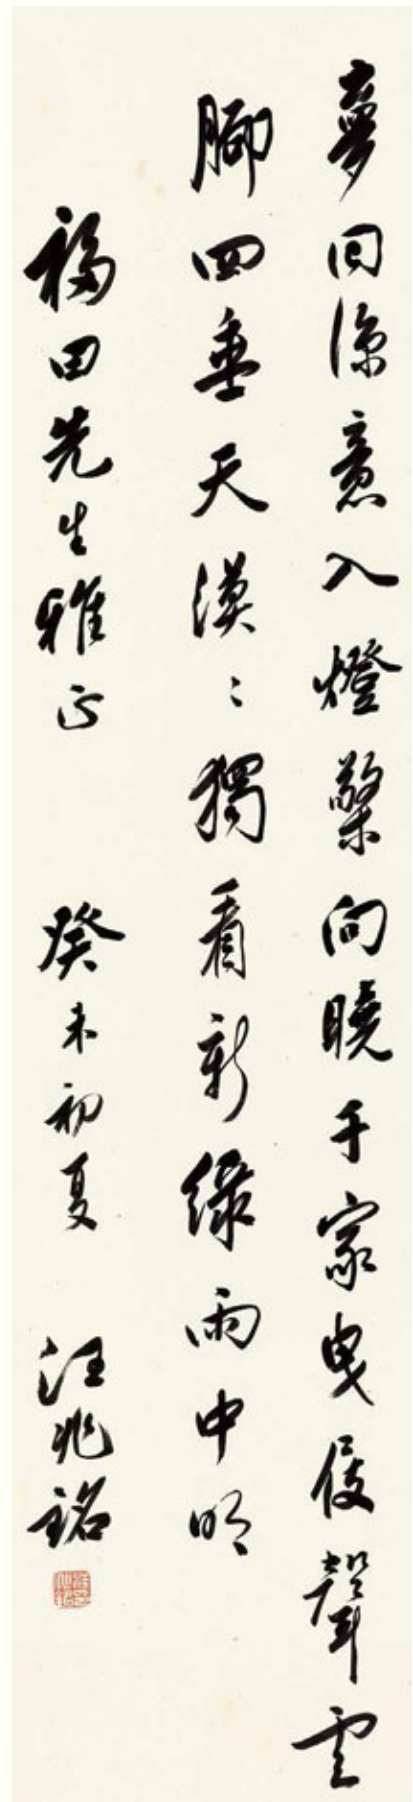 夢回涼意入燈檠向曉千家曳屐聲雲
腳四垂天漠〻獨看新綠雨中明
福田先生雅正 癸未初夏 汪兆銘